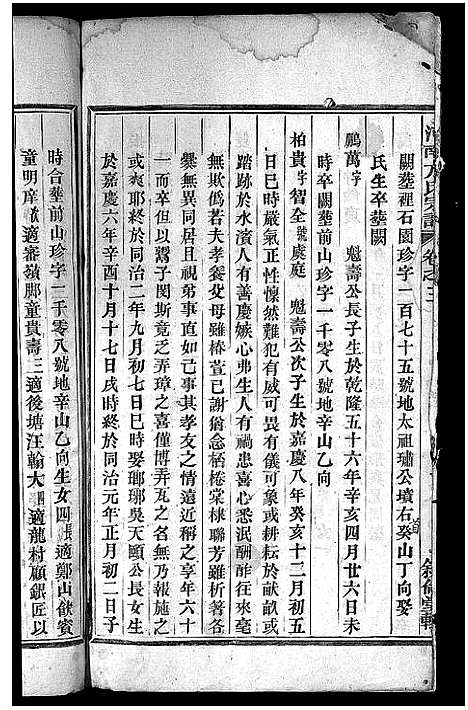 闕塟裡石園珍字一百七十五號地太祖璛公墳右癸山丁向娶
氏生卒塟闕
鵬萬字 魁壽公長子生於乾隆五十六年辛亥四月廿六日未
時卒闕塟前山珍字一千零八號地辛山乙向
柏貴字智全號處庭 魁壽公次子生於嘉慶八年癸亥十二月初五
日巳時嚴氣正性懍然難犯有威可畏有儀可象或耕耘於畎畝或
踏跡於水濱人有善慶嫉心弗生人有禍患喜心悉泯酬酢往來毫
無欺僞若夫孝養父母雖椿萱已謝猶念桮棬棠棣聯芳雖析箸各
無異同居且視弟事直如己事其孝友之情遠近稱之享年六十
一而卒但以鬻子閔斯竟乏弄璋之喜僅博弄瓦之名無乃報施之
或爽耶終於同治二年九月初七日巳時娶瑯琊吳天頤公長女生
於嘉慶六年辛酉十月十七日戌時終於同治元年正月初二日子
時合塟前山珍字一千零八號地辛山乙向生女四長適鄭山飲賓
童明庠二適審嶺脚童貴壽三適後塘汪翰大四適龍村顧銀匠以
南方氏宗譜 卷之三
敘倫堂輯